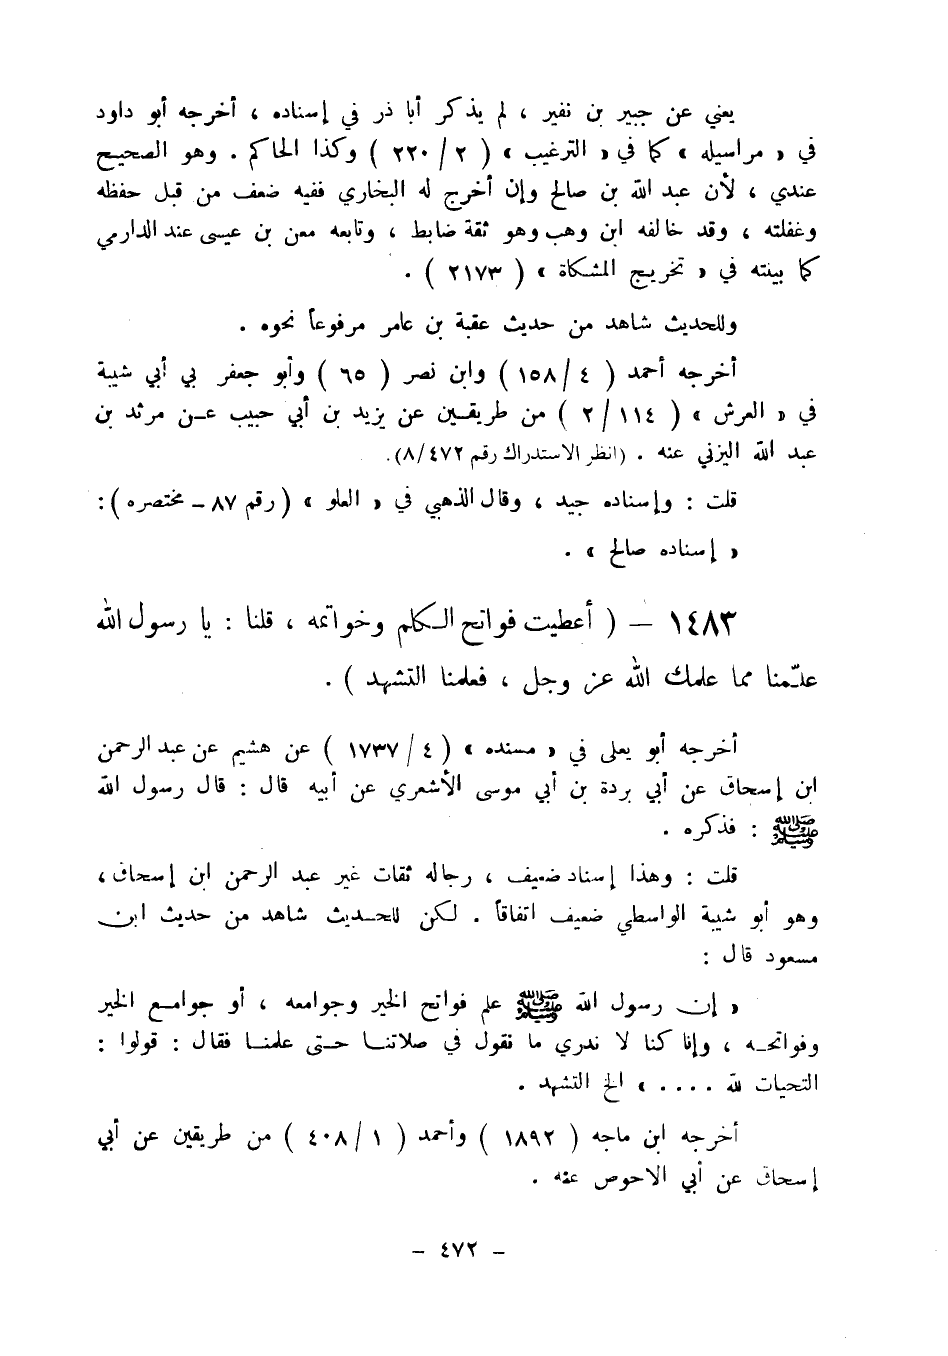 يعني عن جبير بن نفير ، لم يذكر أبا ذر في إسناده ، أخرجه أبو داود
في « مراسيله » كما في « الترغيب » ( ٢ / ٢٢٠ ) وكذا الحاكم . وهو الصحيح
عندي ، لأن عبد الله بن صالح وإن أخرج له البخاري ففيه ضعف من قبل حفظه
وغفلته ، وقد خالفه ابن وهب وهو ثقة ضابط ، وتابعه معن بن عيسى عند الدارمي
كما بينته في « تخريج المشكاة » ( ٢١٧٣ ) .
وللحديث شاهد من حديث عقبة بن عامر مرفوعاً نحوه .
أخرجه أحمد ( ٤ / ١٥٨ ) وابن نصر ( ٦٥ ) وأبو جعفر بي أبي شيبة
في « العرش » ( ١١٤ / ٢ ) من طريقين عن يزيد بن أبي حبيب عن مرثد بن
عبد الله اليزني عنه . (انظر الاستدراك رقم ٨/٤٧٢).
قلت : وإسناده جيد ، وقال الذهبي في « العلو » ( رقم ٨٧ - مختصره ) :
« إسناده صالح » .
١٤٨٣ – ( أعطيت فواتح الكلم وخواتمه ، قلنا : يا رسول الله
علّمنا مما علمك الله عز وجل ، فعلمنا التشهد ) .
أخرجه أبو يعلى في « مسنده » ( ٤ / ١٧٣٧ ) عن هشيم عن عبد الرحمن
ابن إسحاق عن أبي بردة بن أبي موسى الأشعري عن أبيه قال : قال رسول الله
ﷺ : فذكره .
قلت : وهذا إسناد ضعيف ، رجاله ثقات غير عبد الرحمن ابن إسحاق ،
وهو أبو شيبة الواسطي ضعيف اتفاقاً . لكن للحديث شاهد من حديث ابن
مسعود قال :
« إن رسول الله ﷺ علم فواتح الخير وجوامعه ، أو جوامع الخير
وفواتحه ، وإنا كنا لا ندري ما نقول في صلاتنا حتى علمنا فقال : قولوا :
التحيات لله .... » الخ التشهد .
أخرجه ابن ماجه ( ١٨٩٢ ) وأحمد ( ١ / ٤٠٨ ) من طريقين عن أبي
إسحاق عن أبي الاحوص عنه .
- ٤٧٢ -